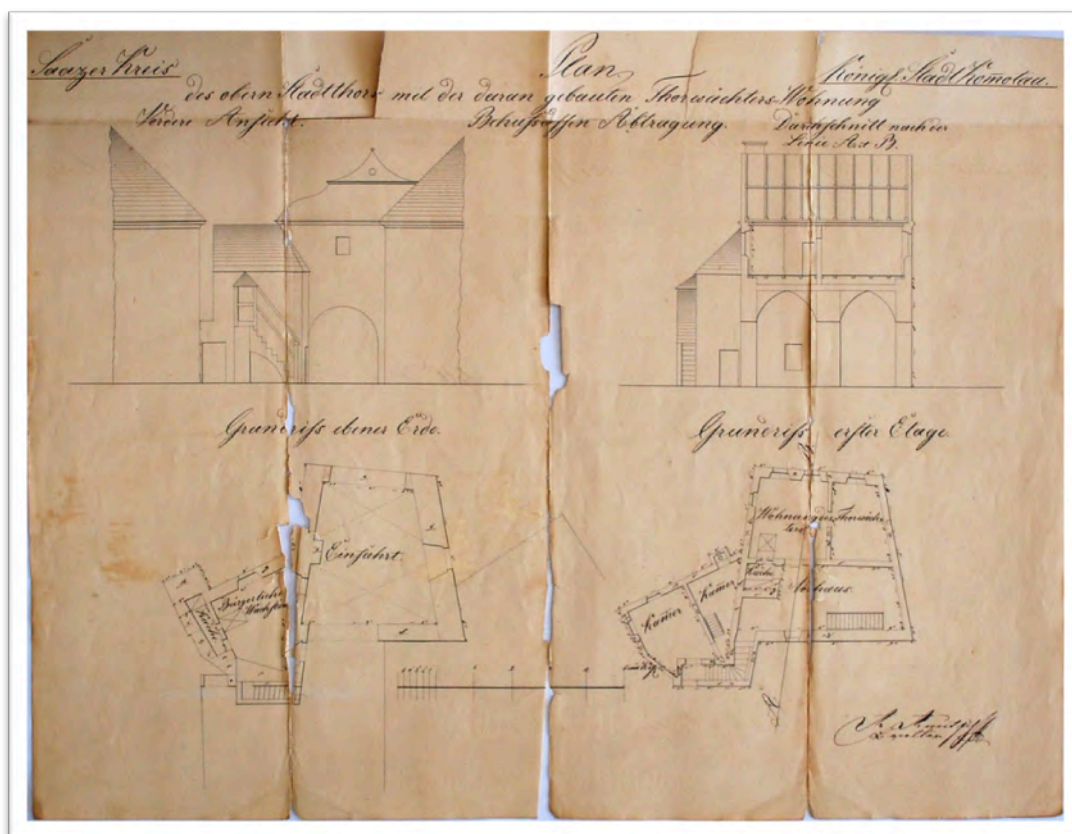 Saazer Kreis
Plan
Königl. Stadt Komotau.
des obern Stadtthors mit der daran gebauten Thorwächters-Wohnung
Behuf dessen Abtragung.
Vordere Ansicht.
Durchschnitt nach der
Linie A et B.
Grundriss ebener Erde.
Grundriss erster Etage.
Einfahrt.
Bürgerliche
Wachstube
Küche
Wohnung des Thorwächters
Küche
Vorhaus.
Kamer
Kamer